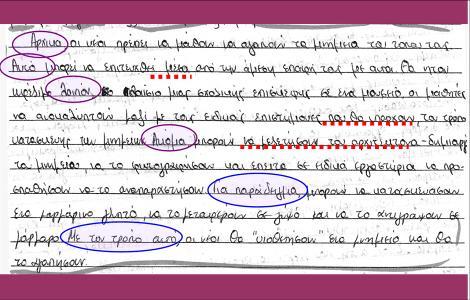 Αρχικα οι νέοι πρέπει να μάθουν να αγαπούν τα μνημεία του τόπου τους.
Αυτό μπορεί να επιτευχθεί μέσα από την άμεση επαφή τους με αυτα. Θα ήταν
ωφέλιμο λοιπον στο πλαίσιο μιας σχολικής επισκέψεως σε ένα μουσείο οι μαθητές
να μαζί με τους ειδικούς επιστήμονες που θα υπάρχουν τον τρόπο
κατασκευής των μνημείων. Ακομα μπορούν να μελετήσουν το αρχιτεκτονα-δημιουργ
το μνημείο, να το φωτογραφήσουν και έπειτα σε ειδικά εργαστήρια να προ-
σπαθήσουν να το αναπαραστήσουν. Για παράδειγμα, μπορούν να κατασκευάσουν
ένα μαρμάρινο γλυπτό, να το μεταφέρουν σε γύψο και να το αντιγράψουν σε
μάρμαρο. Με τον τρόπο αυτο οι νέοι θα "υιοθετήσουν" ένα μνημείο και θα
το αγαπήσουν.